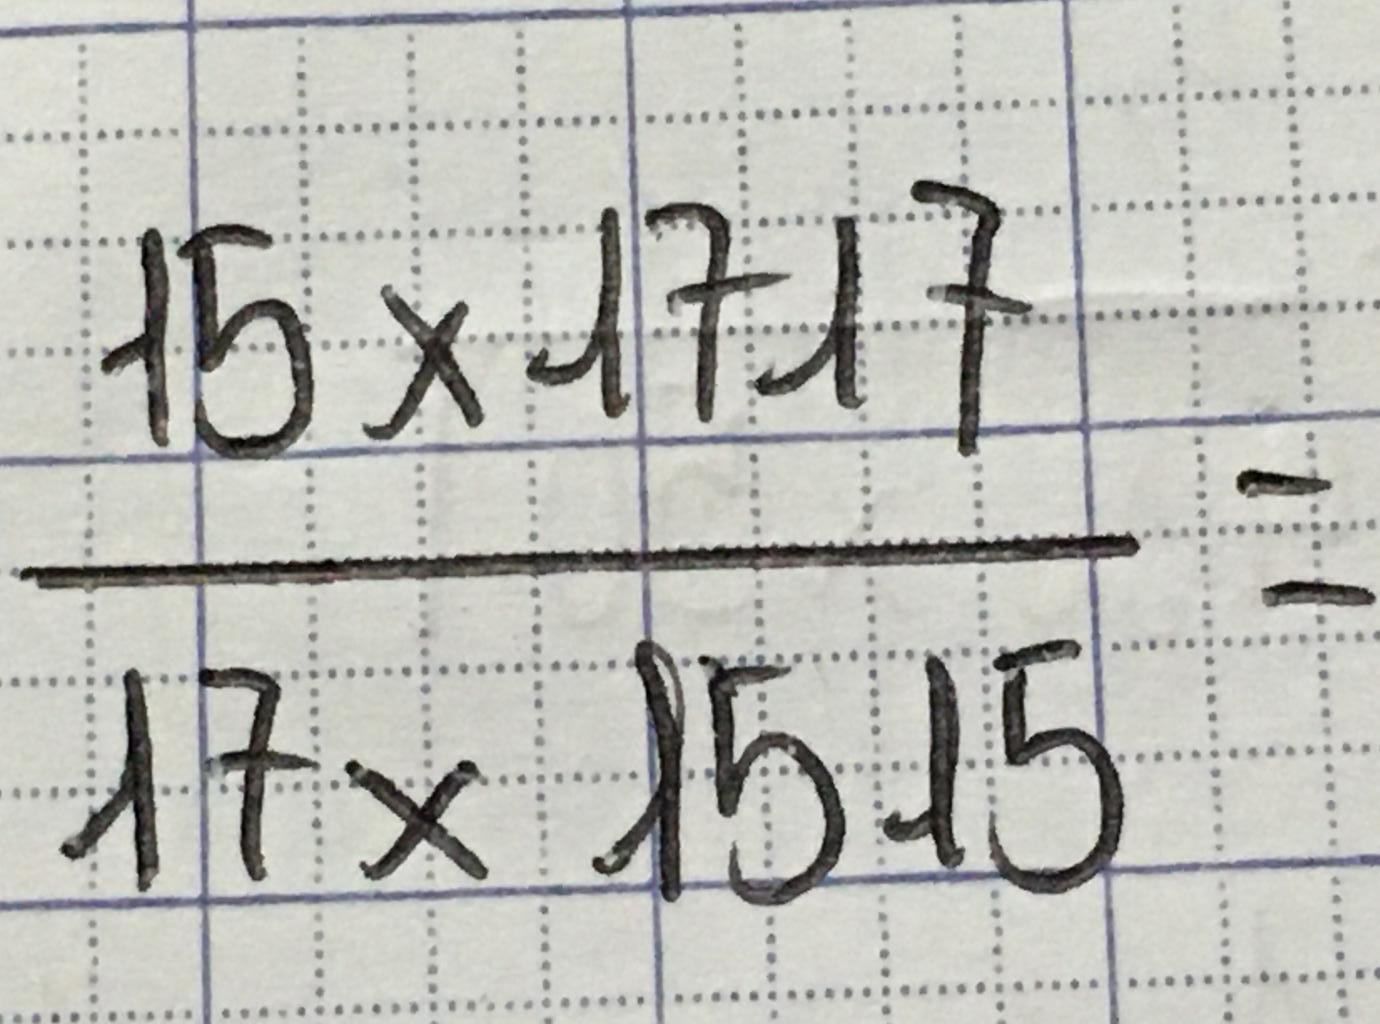 15 x 1717
=
17 x 1515